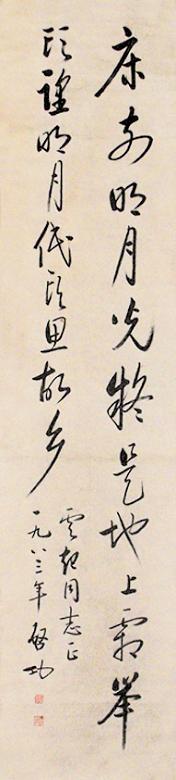 床前明月光疑是地上霜舉
頭望明月低頭思故乡
雲起同志正
一九八三年 啓功